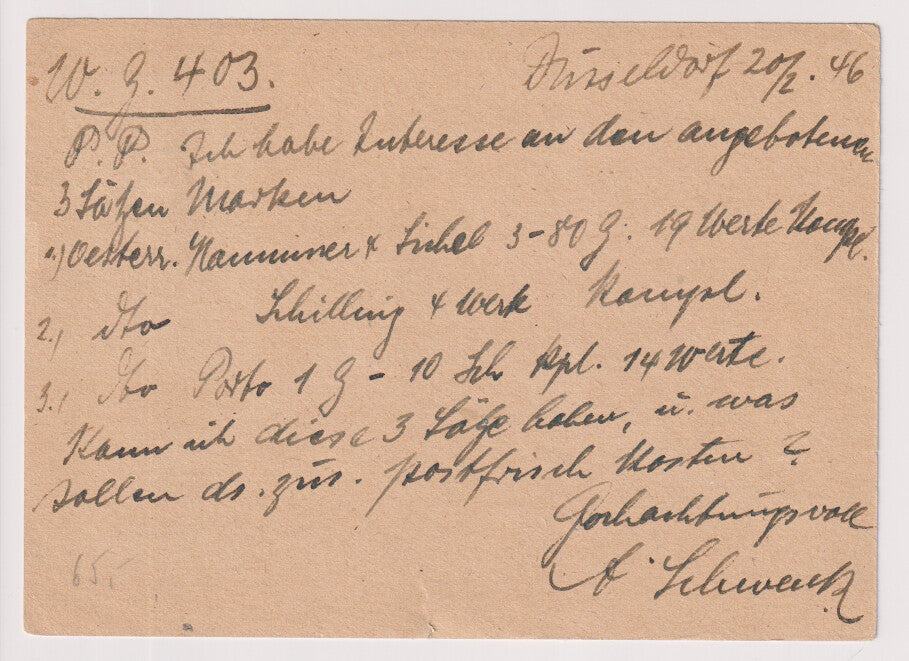 W. G. 403.
Düsseldorf 20/2. 46
P.P. Ich habe Interesse an den angebotenen
3 Sätzen Marken
1.) Oesterr. Hammer & Sichel 3-80 G. 19 Werte Kompl.
2.) dto Schilling 4 Werte Kompl.
3.) dto Porto 1 G - 10 Sch kpl. 14 Werte.
Kann ich diese 3 Sätze haben, u. was
sollen ds. zus. postfrisch Kosten ?
Hochachtungsvoll
A. Schwenk
65.-